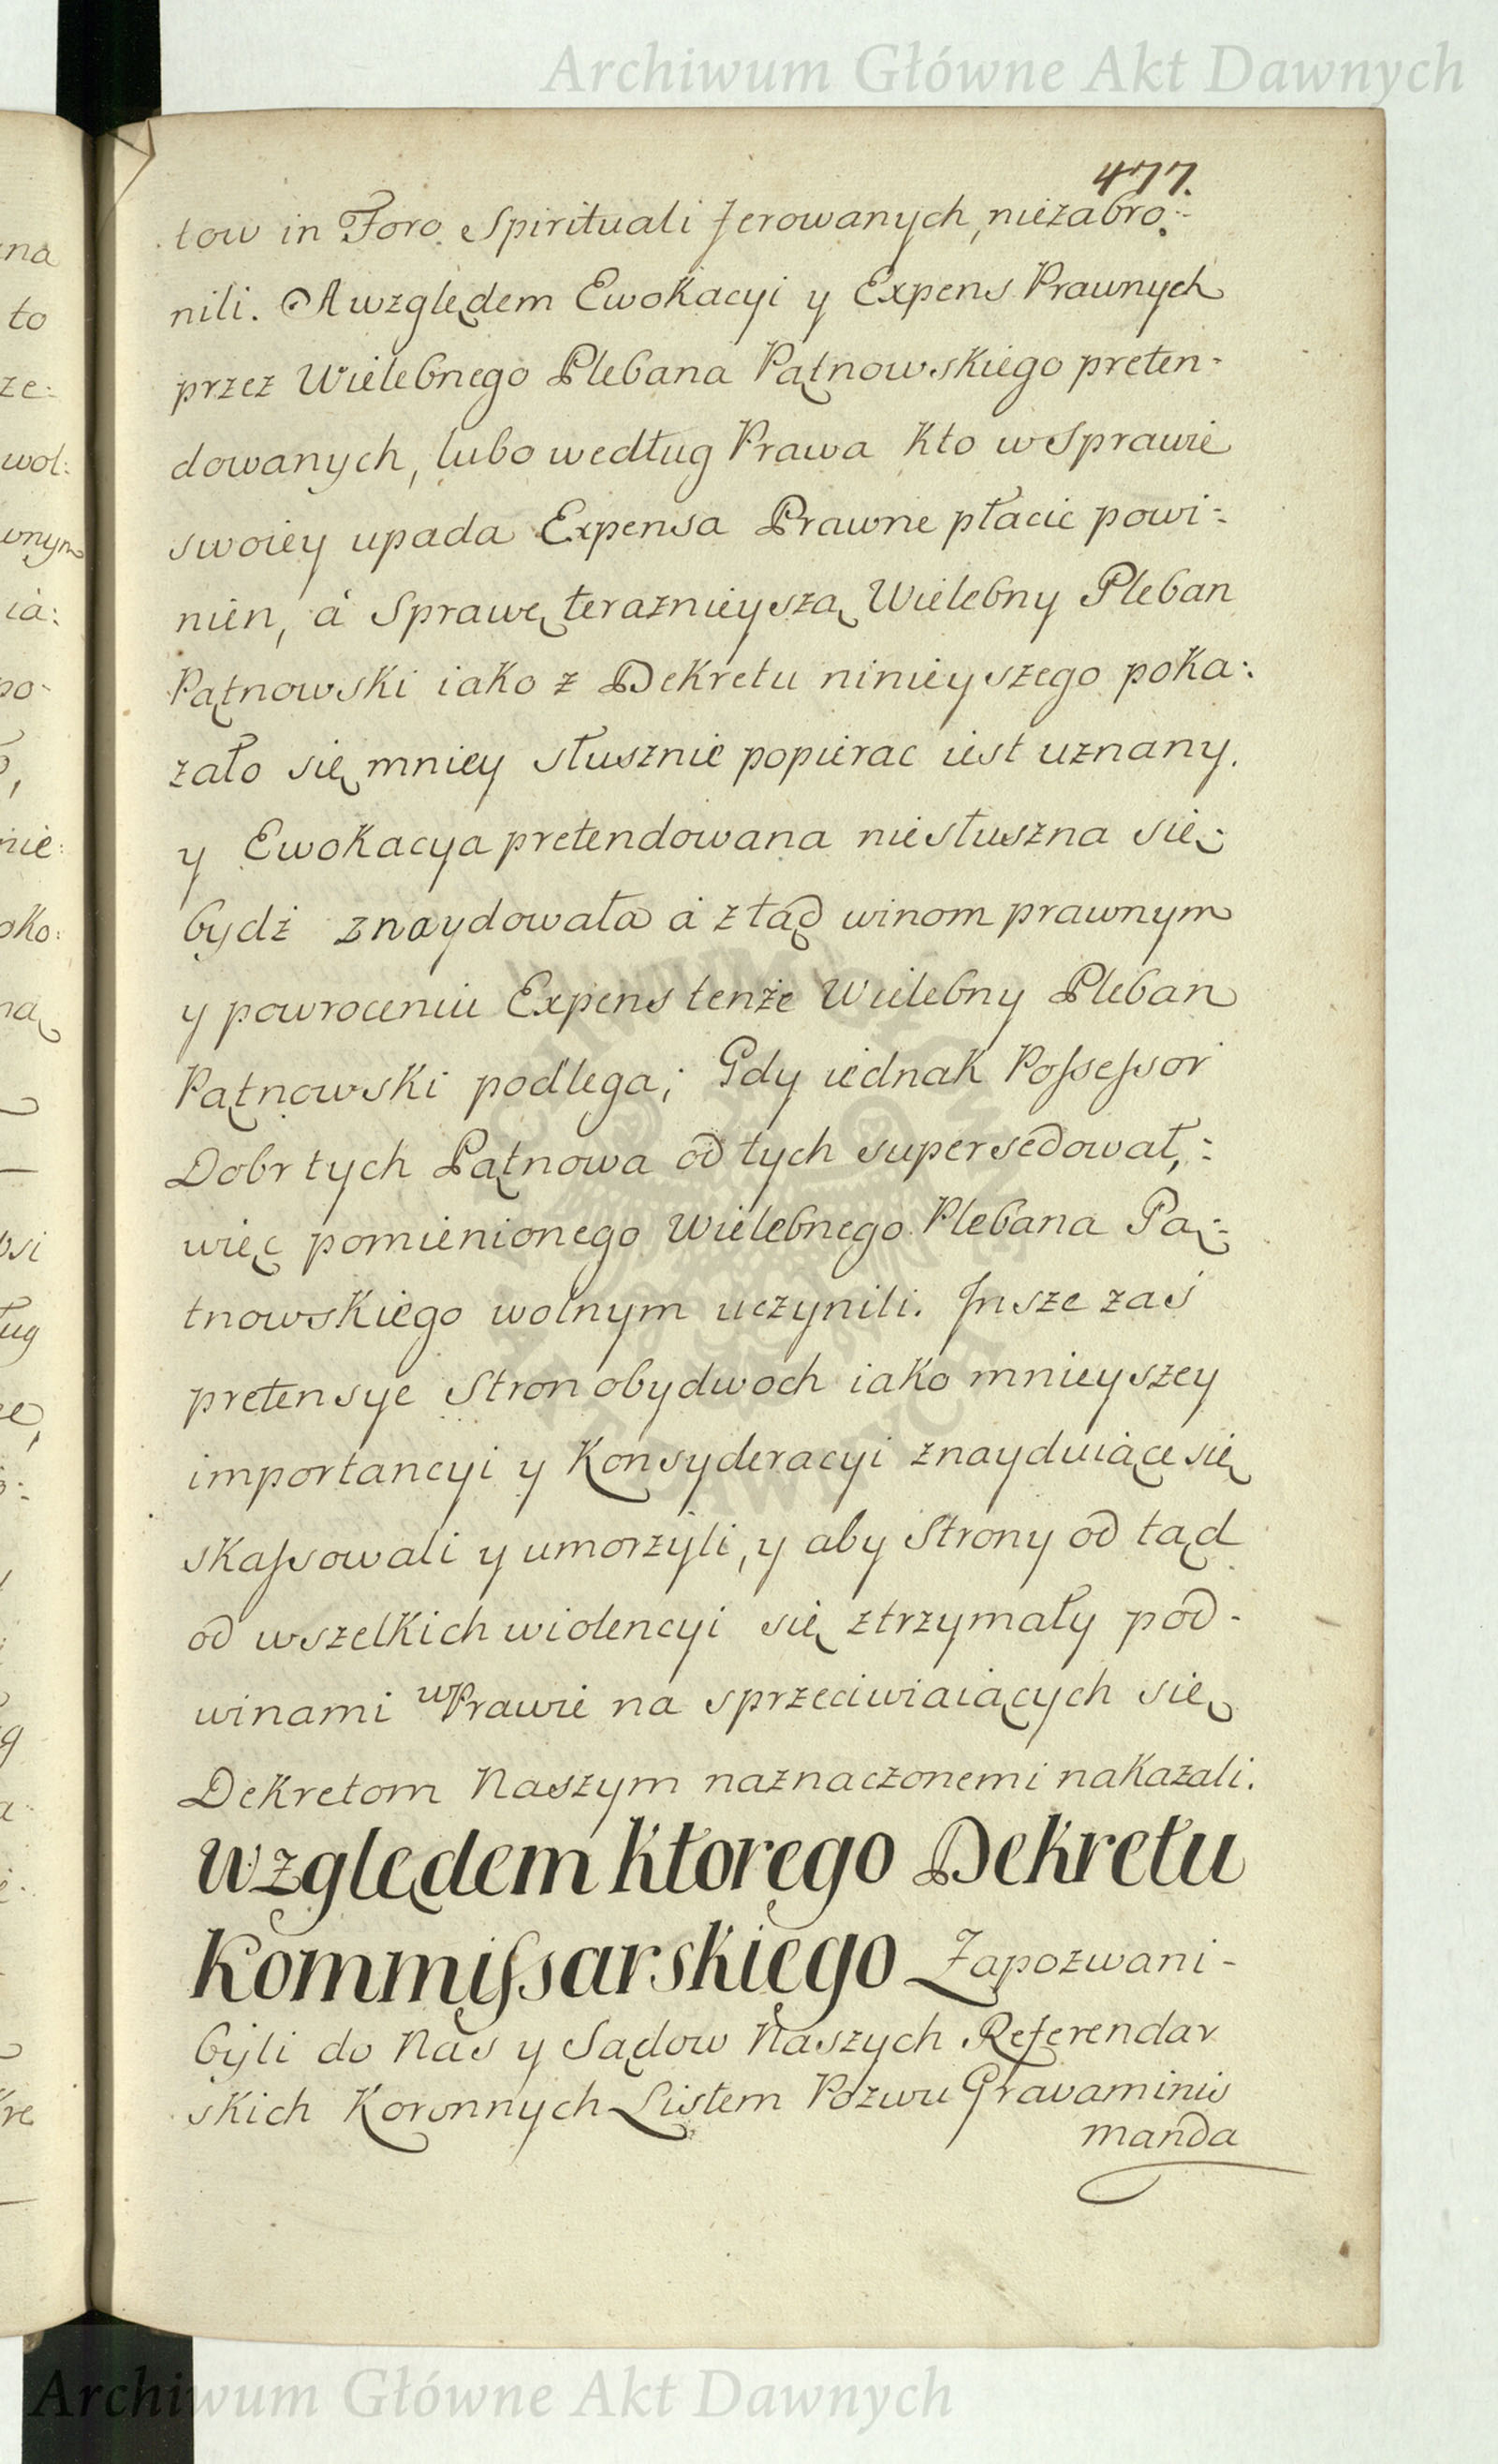 Archiwum Główne Akt Dawnych
477.
tow in Foro Spirituali ferowanych, niezabro:-
nili. A względem Ewokacyi y Expens Prawnych
przez Wielebnego Plebana Pątnowskiego preten-
dowanych, lubo według Prawa kto w Sprawie
swoiey upada Expensa Prawne płacic powi:
nien, á Sprawę teraznieyszą Wielebny Pleban
Pątnowski iako z Dekretu ninieyszego poka:
zało się mniey słusznie popierac iest uznany.
y Ewokacya pretendowana niesłuszna się:
bydź znaydowała á ztąd winom prawnym
y powroceniu Expens tenże Wielebny Pleban
Pątnowski podlega; Gdy iednak Possessor
Dobr tych Pątnowa od tych supersedował,:
więc pomienionego Wielebnego Plebana Pą:
tnowskiego wolnym uczynili. Insze zaś
pretensye Stron obydwoch iako mnieyszey
importancyi y Konsyderacyi znayduiące się
skassowali y umorzyli, y aby Strony od tąd
od wszelkich wiolencyi się ztrzymały pod-
winami w Prawie na sprzeciwiaiących się
Dekretom Naszym naznaczonemi nakazali.
Względem ktorego Dekretu
Kommissarskiego Zapozwani-
byli do Nas y Sądow Naszych Referendar
skich Koronnych Listem Pozwu Gravaminis
manda
Archiwum Główne Akt Dawnych